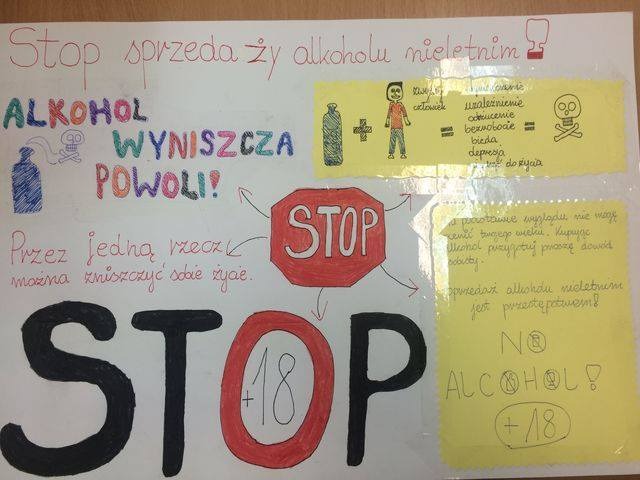 Stop sprzeda ży alkoholu nieletnim!
ALKOHOL
WYNISZCZA
POWOLI!
człowiek
uzależnienie
odrzucenie
bezrobocie
bieda
depresja
do życia
+
=
=
STOP
Przez jedną rzecz
można zniszczyć sobie życie.
podstawie wyglądu nie mogę
twojego wieku. Kupując
alkohol przygotuj proszę dowód
osobisty.
sprzedaż alkoholu nieletnim
jest przestępstwem!
NO
ALCOHOL!
+18
STOP
+18